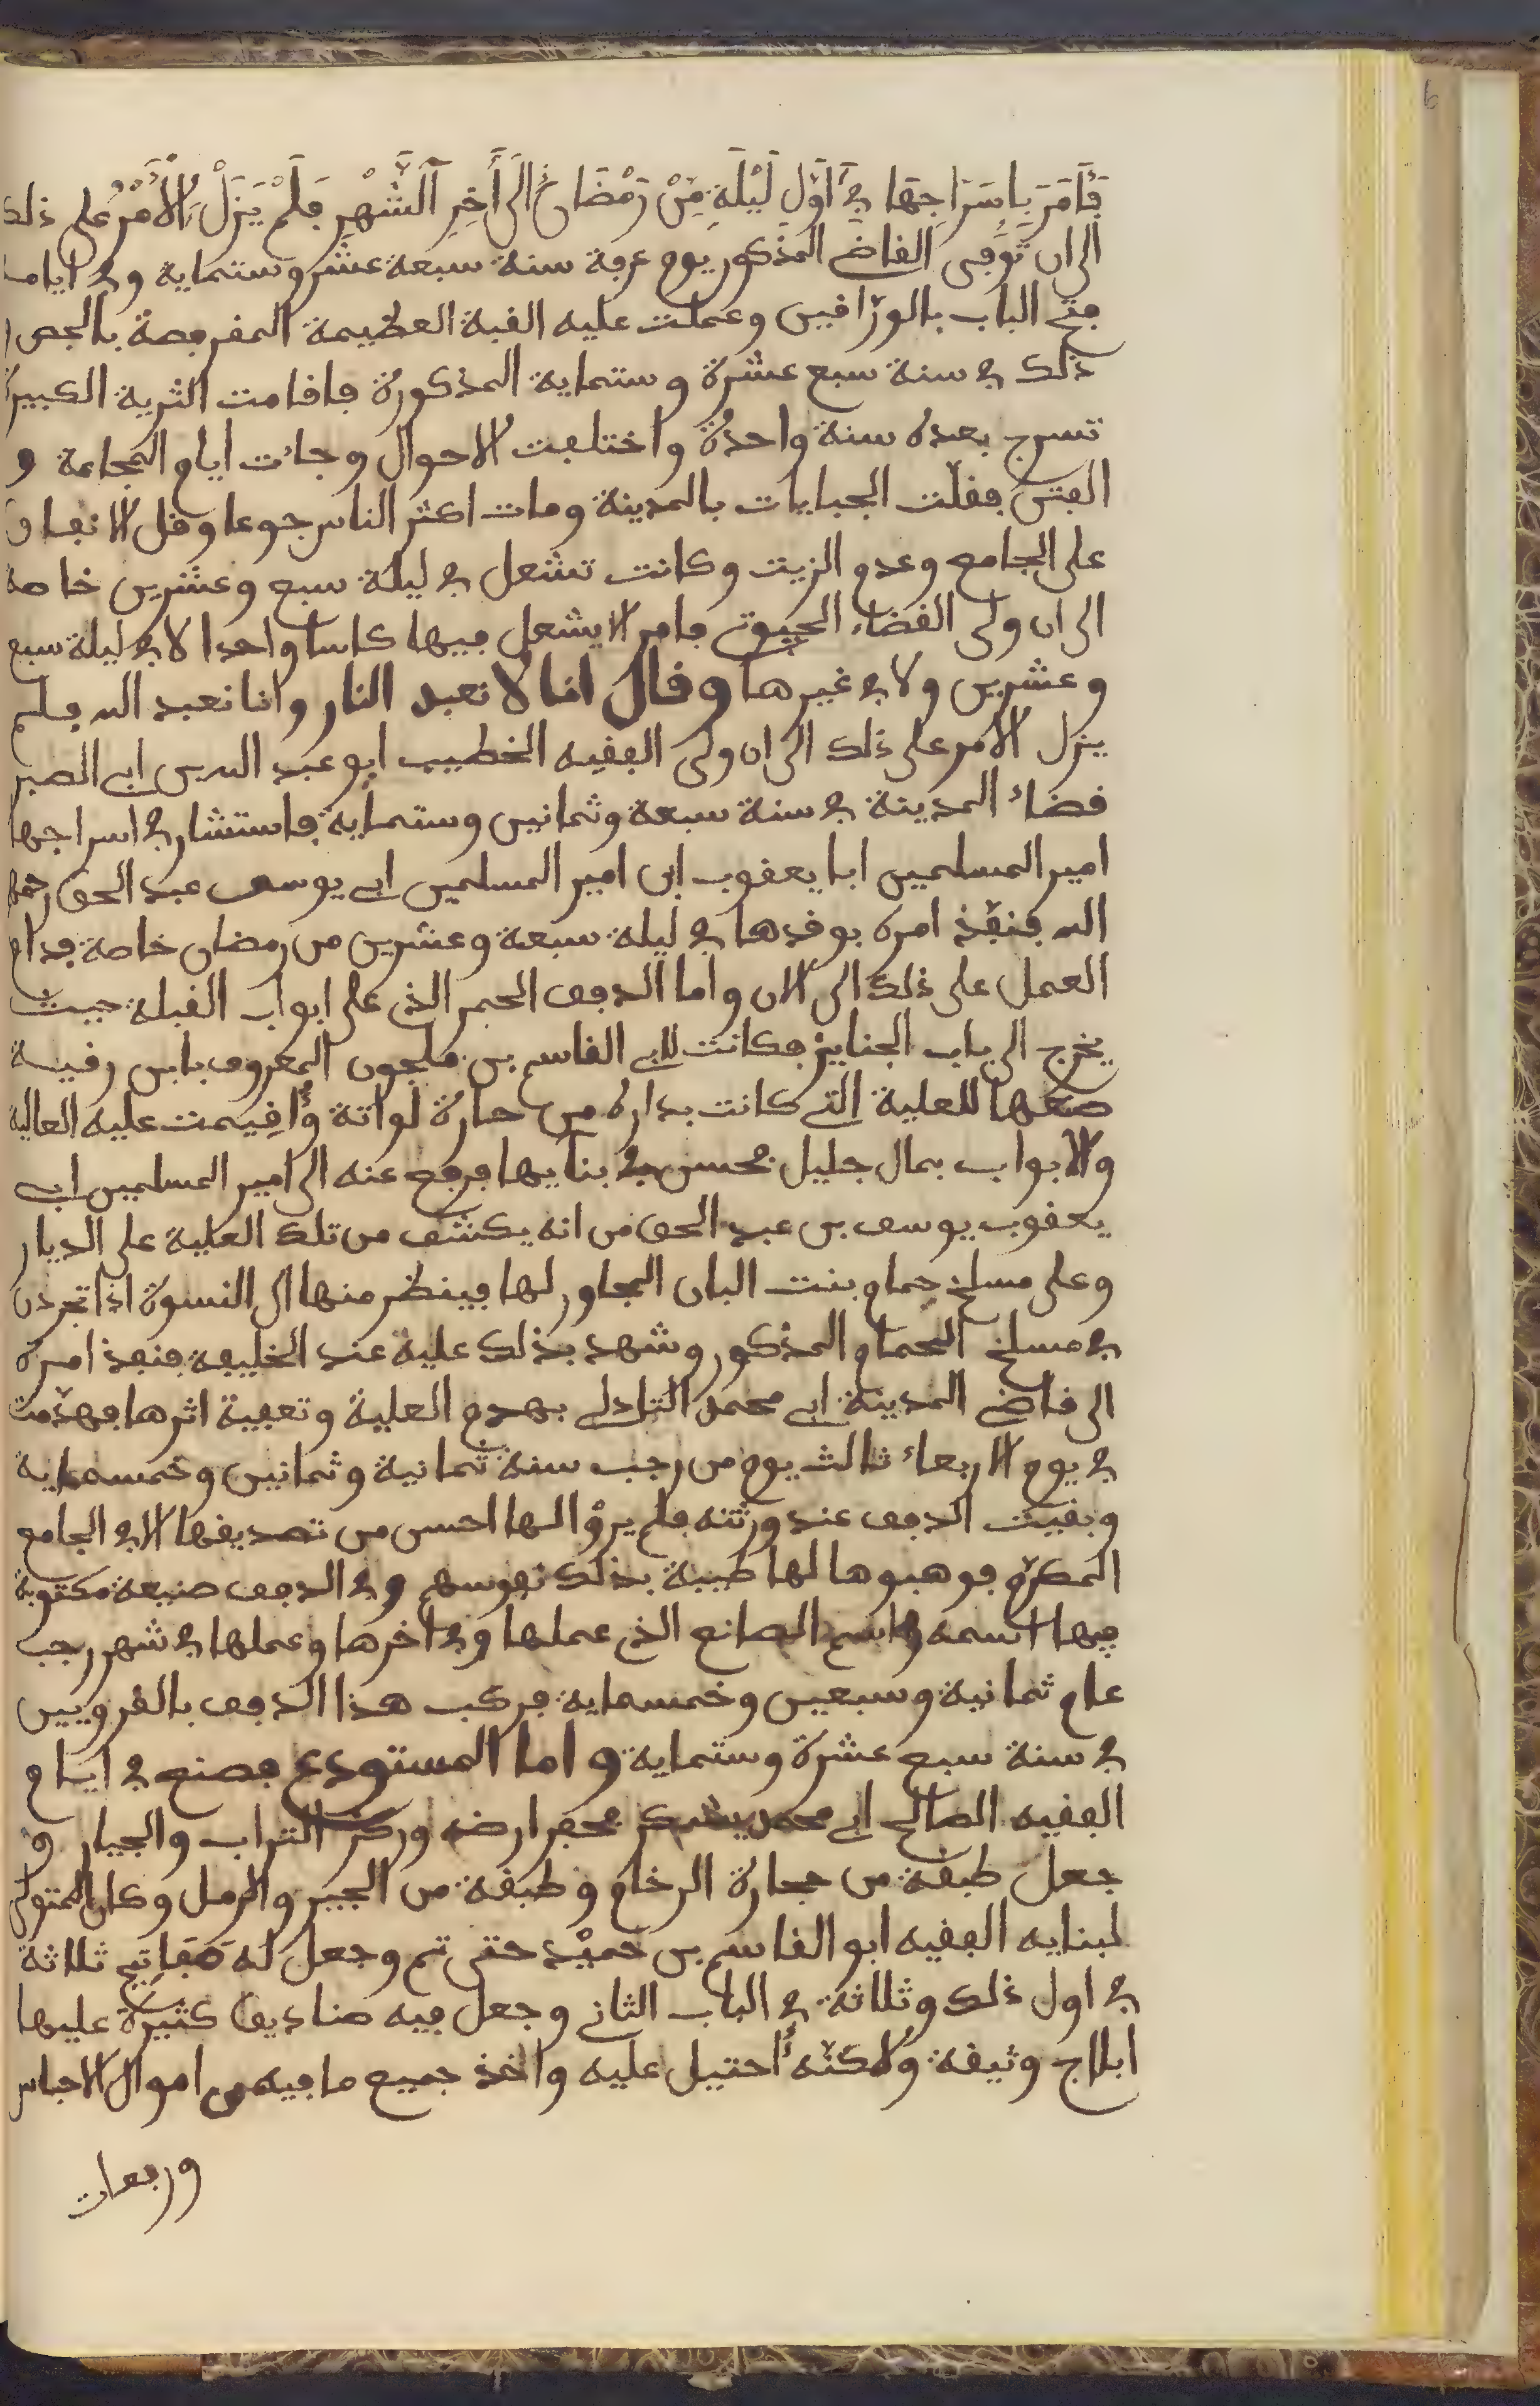 فَأَمَرَ بِإِسَرَاجِهَا فِي أَوَّلِ لَيْلَةٍ مِّنْ رَمْضَانَ إِلَى أَخِرِ ٱلشَّهْرِ فَلَمْ يَزَلْ ٱلْأَمْرُ على ذلك
الى ان تُوُفِّى القاضي المذكور يوم عرفة سنة سبعة عشر وستماية وفي ايامه
فتح الباب بالورّاقين وعملت عليه القبة العظيمة المقربصة بالجص
ذلك في سنة سبع عشرة وستماية المذكورة فاقامت الثرية الكبيرة
تسرج بعده سنة واحدة واختلفت الاحوال وجاءت ايام المجاعة و
الفتن فقلّت الجبايات بالمدينة ومات اكثر الناس جوعا وقل الانفاق
على الجامع وعدم الزيت وكانت تشعل في ليلة سبع وعشرين خاصة
الى ان ولى القضاء الحيوني فامر الا يشعل فيها كاسا واحدا لا في ليلة سبع
وعشرين ولا في غيرها وقال انا لا نعبد النار وانا نعبد الله فلم
يزل الامر على ذلك الى ان ولى الفقيه الخطيب ابو عبد الله بن ابي الصبر
قضاء المدينة في سنة سبعة وثمانين وستماية فاستشار في اسراجها
امير المسلمين ابا يعقوب ابن امير المسلمين ابي يوسف عبد الحق رحمه
الله فنفّذ امره بوقدها في ليلة سبعة وعشرين من رمضان خاصة فدام
العمل على ذلك الى الان واما الدفف الحمر الذي على ابواب القبلة حيث
يخرج الى باب الجنايز فكانت لابي القاسم بن ملجون المعروف بابن رقية
صنعها للعلية التي كانت بداره من حارة لواتة وأُقِيمت عليه العالية
والابواب بمال جليل محسن في بنايها فرفع عنه الى امير المسلمين ابي
يعقوب يوسف بن عبد الحق من انه يكشف من تلك العلية على الديار
وعلى مسلخ حمام بنت البان المجاور لها فينظر منها الى النسوة اذا تجردن
في مسلخ الحمام المذكور وشهد بذلك عليه عند الخليفة فنفذ امره
الى قاضي المدينة ابي محمد التادلي بهدم العلية وتعفية اثرها فهدّمت
في يوم الاربعاء ثالث يوم من رجب سنة ثمانية وثمانين وخمسماية
وبقيت الدفف عند ورثته فلم يرؤا لها احسن من تصديقها الا في الجامع
المكرّم فوهبوها لها طيبة بذلك نفوسهم وفي الدفف صنيعة مكتوبة
فيها اسمه واسم الصانع الذي عملها وفي اخرها وعملها في شهر رجب
عام ثمانية وسبعين وخمسماية فركب هذا الدفف بالقرويين
في سنة سبع عشرة وستماية واما المستودع فصنع في ايام
الفقيه الصالح ابي محمد يشكر فحفر ارضه وركز التراب والجيار و
جعل طبقة من حجارة الرخام وطبقة من الجير والرمل وكان المتولى
لبنايه الفقيه ابو القاسم بن حميْد حتى تم وجعل له مَفَاتِح ثلاثة
في اول ذلك وثلاثة في الباب الثاني وجعل فيه صناديق كثيرة عليها
ابلاج وثيقة ولاكنّه أُحتيل عليه واخذ جميع ما فيه من اموال الاحباس
وربعات